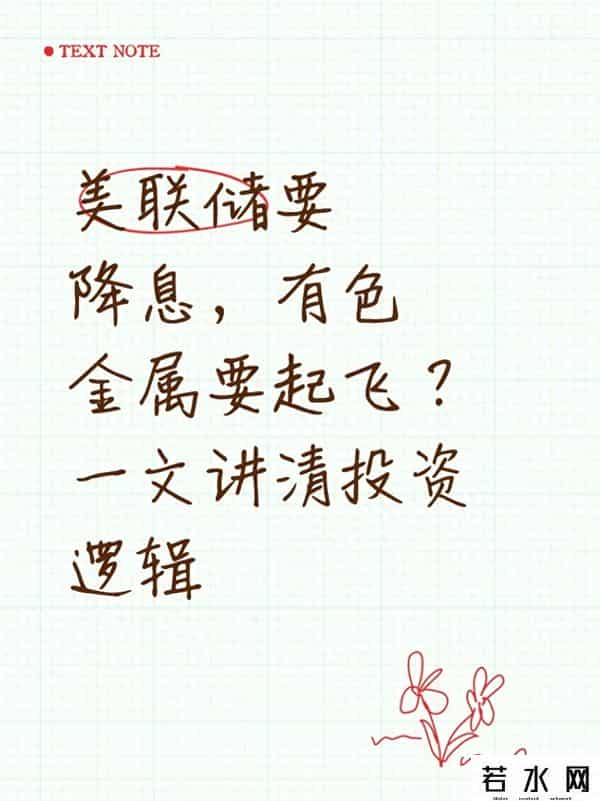 TEXT NOTE
美联储要
降息，有色
金属要起飞？
一文讲清投资
逻辑
若水网